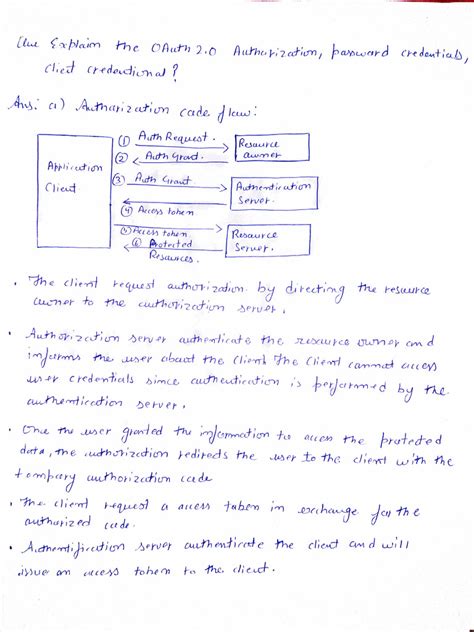 Que Explain the OAuth 2.0 Autharization, password credentials,
client credentional?
Ans: a) Autharization code flow:
Application
Client
① Auth Request.
② Auth Grant.
Resource
owner
③ Auth Grant
④ Access token
Authentication
Server.
⑤ Access token
⑥ Protected
Resources.
Resource
Server.
• The client request authorization by directing the resource
owner to the authorization server.
• Authorization server authenticate the resource owner and
informs the user about the client The client cannot access
user credentials since authentication is performed by the
authentication server.
• Once the user granted the information to access the protected
data, the authorization redirects the user to the client with the
tempary authorization code
• The client request a access token in exchange for the
authorized code.
• Authentification server authenticate the client and will
issue an access token to the client.